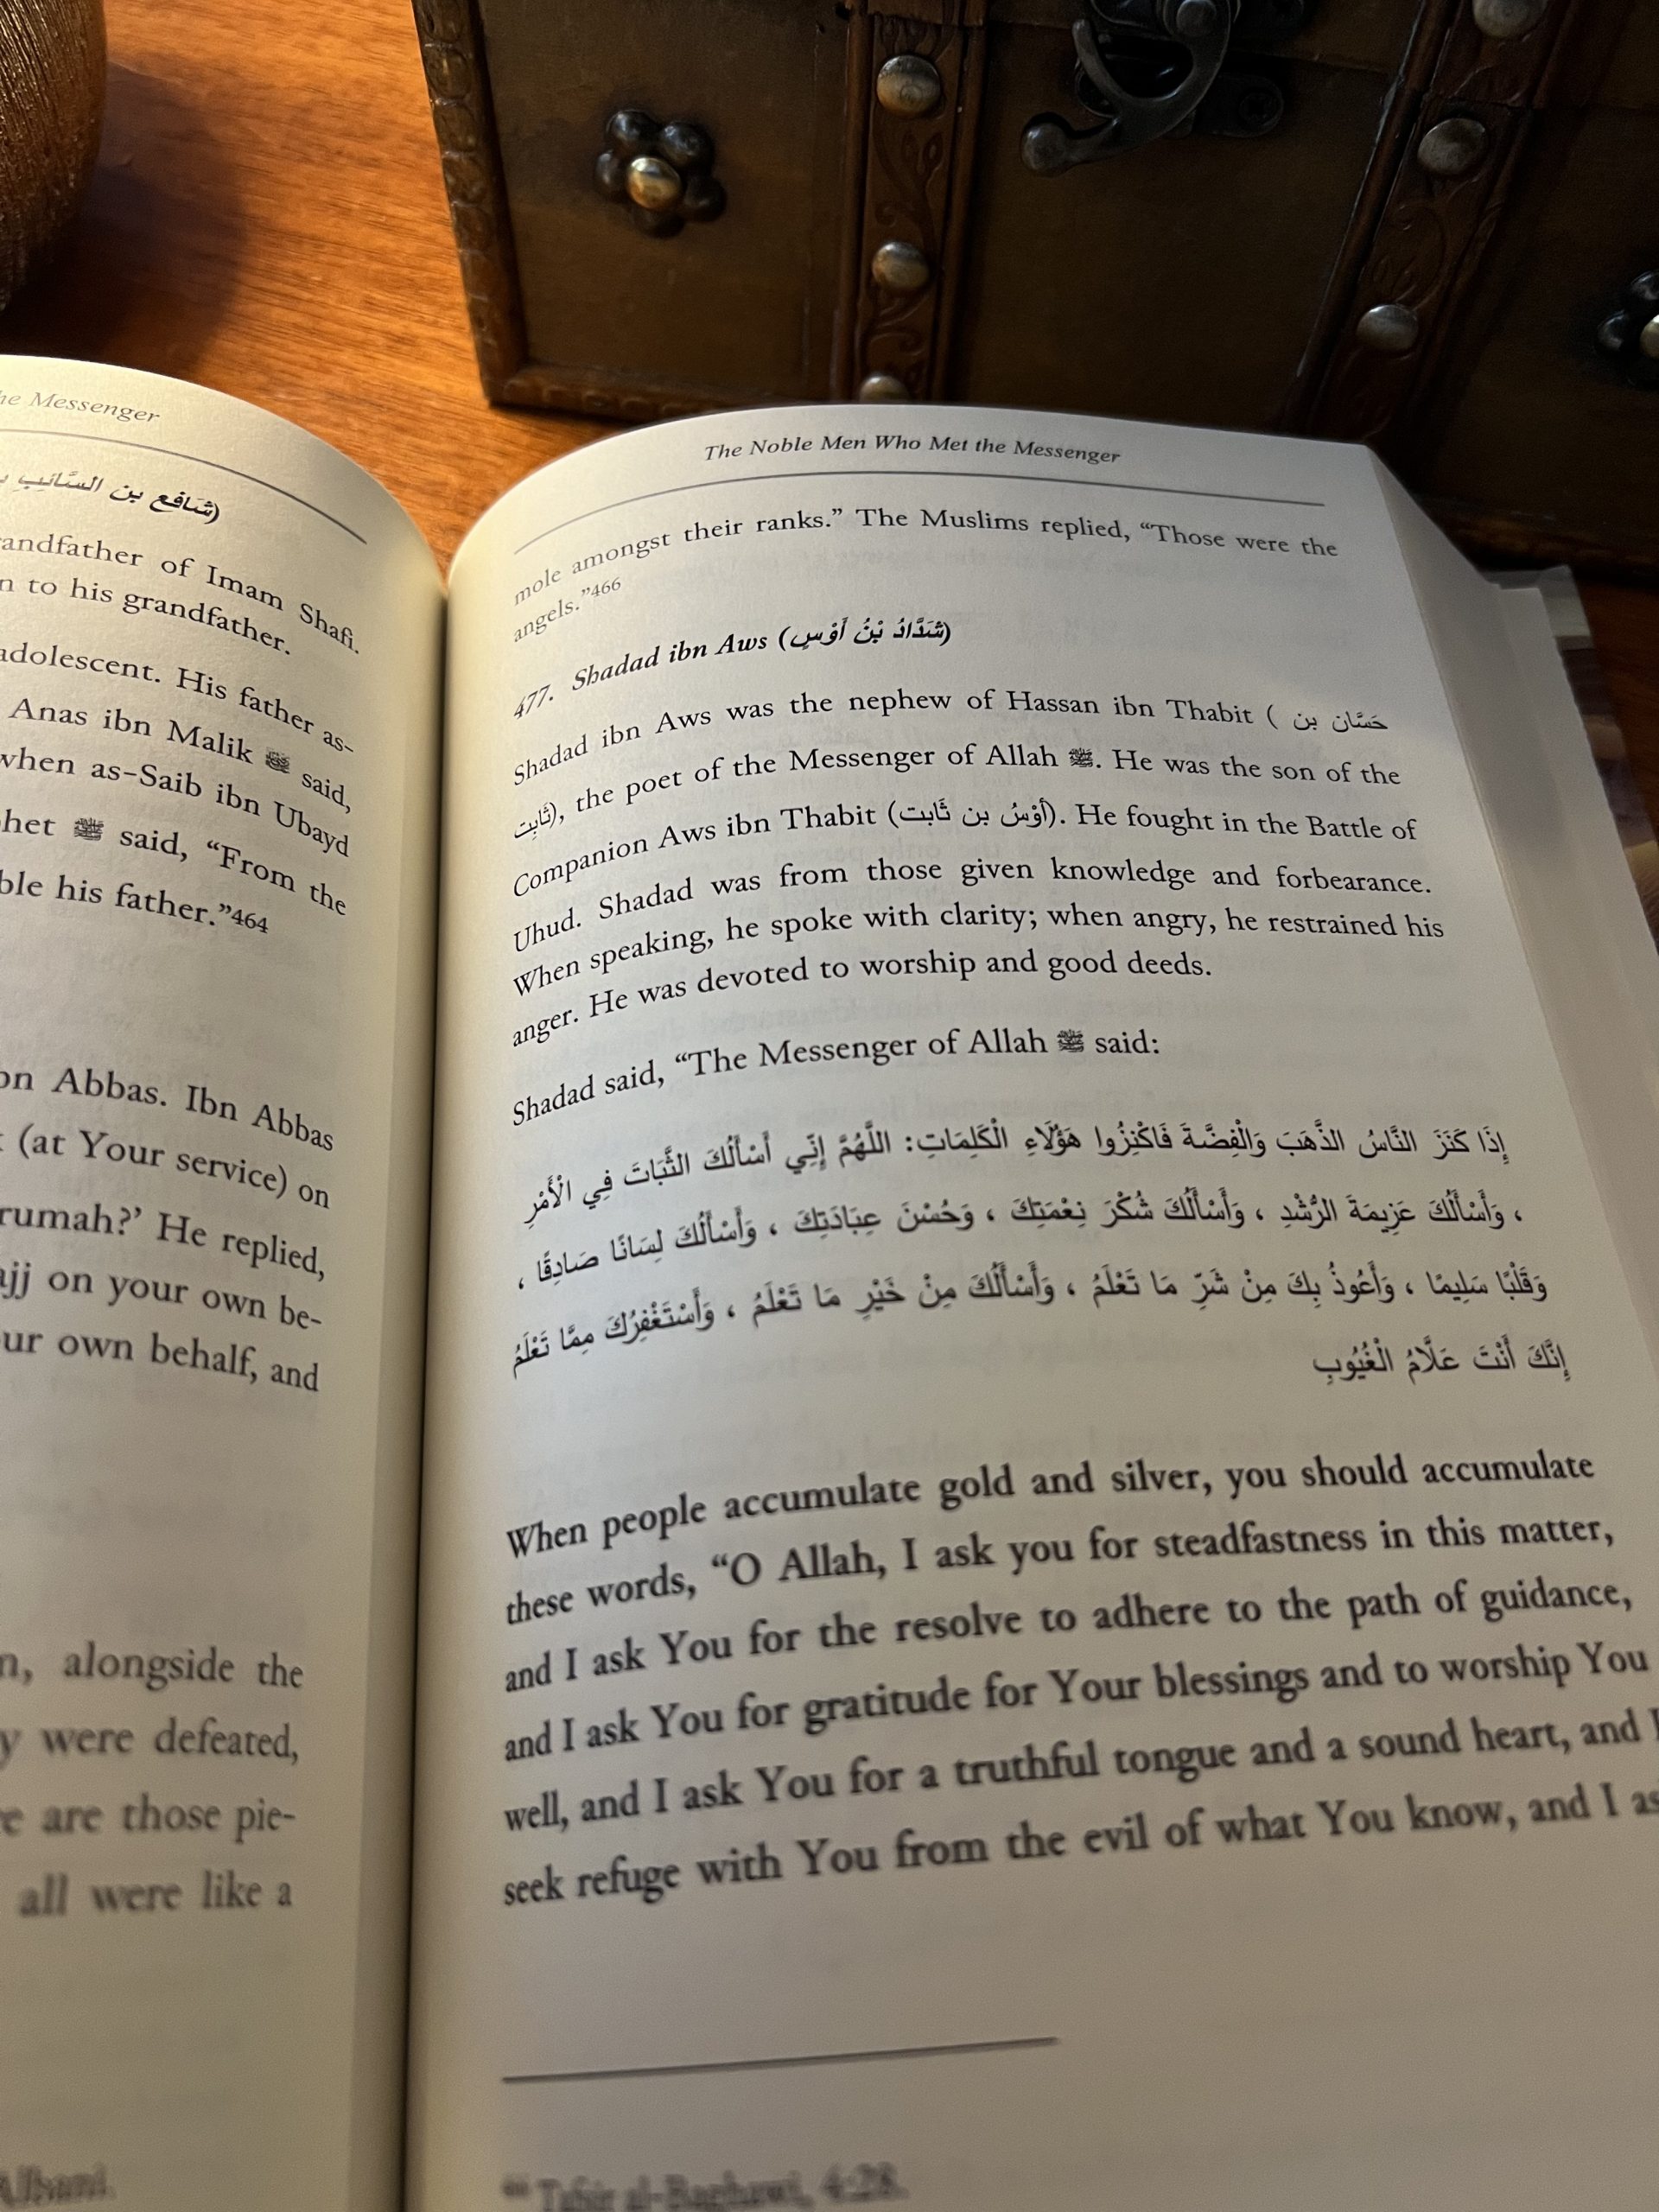 he Messenger
(شَافِع بن السَّائِبِ
andfather of Imam Shafi.
n to his grandfather.
adolescent. His father as-
Anas ibn Malik ﷺ said,
when as-Saib ibn Ubayd
het ﷺ said, “From the
ble his father.”464
on Abbas. Ibn Abbas
(at Your service) on
rumah?’ He replied,
ajj on your own be-
ur own behalf, and
n, alongside the
y were defeated,
e are those pie-
all were like a
Albani.
The Noble Men Who Met the Messenger
mole amongst their ranks.” The Muslims replied, “Those were the
angels.”466
477. Shadad ibn Aws (شَدَّادُ بْنُ أَوْسٍ)
Shadad ibn Aws was the nephew of Hassan ibn Thabit ( حَسَّان بن
ثَابِت), the poet of the Messenger of Allah ﷺ. He was the son of the
Companion Aws ibn Thabit (أوْسُ بن ثَابت). He fought in the Battle of
Uhud. Shadad was from those given knowledge and forbearance.
When speaking, he spoke with clarity; when angry, he restrained his
anger. He was devoted to worship and good deeds.
Shadad said, “The Messenger of Allah ﷺ said:
إِذَا كَنَزَ النَّاسُ الذَّهَبَ وَالْفِضَّةَ فَاكْنِزُوا هَؤُلَاءِ الْكَلِمَاتِ: اللَّهُمَّ إِنِّي أَسْأَلُكَ الثَّبَاتَ فِي الْأَمْرِ
، وَأَسْأَلُكَ عَزِيمَةَ الرُّشْدِ ، وَأَسْأَلُكَ شُكْرَ نِعْمَتِكَ ، وَحُسْنَ عِبَادَتِكَ ، وَأَسْأَلُكَ لِسَانًا صَادِقًا ،
وَقَلْبًا سَلِيمًا ، وَأَعُوذُ بِكَ مِنْ شَرِّ مَا تَعْلَمُ ، وَأَسْأَلُكَ مِنْ خَيْرِ مَا تَعْلَمُ ، وَأَسْتَغْفِرُكَ مِمَّا تَعْلَمُ
إِنَّكَ أَنْتَ عَلَّامُ الْغُيُوبِ
When people accumulate gold and silver, you should accumulate
these words, “O Allah, I ask you for steadfastness in this matter,
and I ask You for the resolve to adhere to the path of guidance,
and I ask You for gratitude for Your blessings and to worship You
well, and I ask You for a truthful tongue and a sound heart, and I
seek refuge with You from the evil of what You know, and I as
Tafsir al-Baghawi, 4:28.